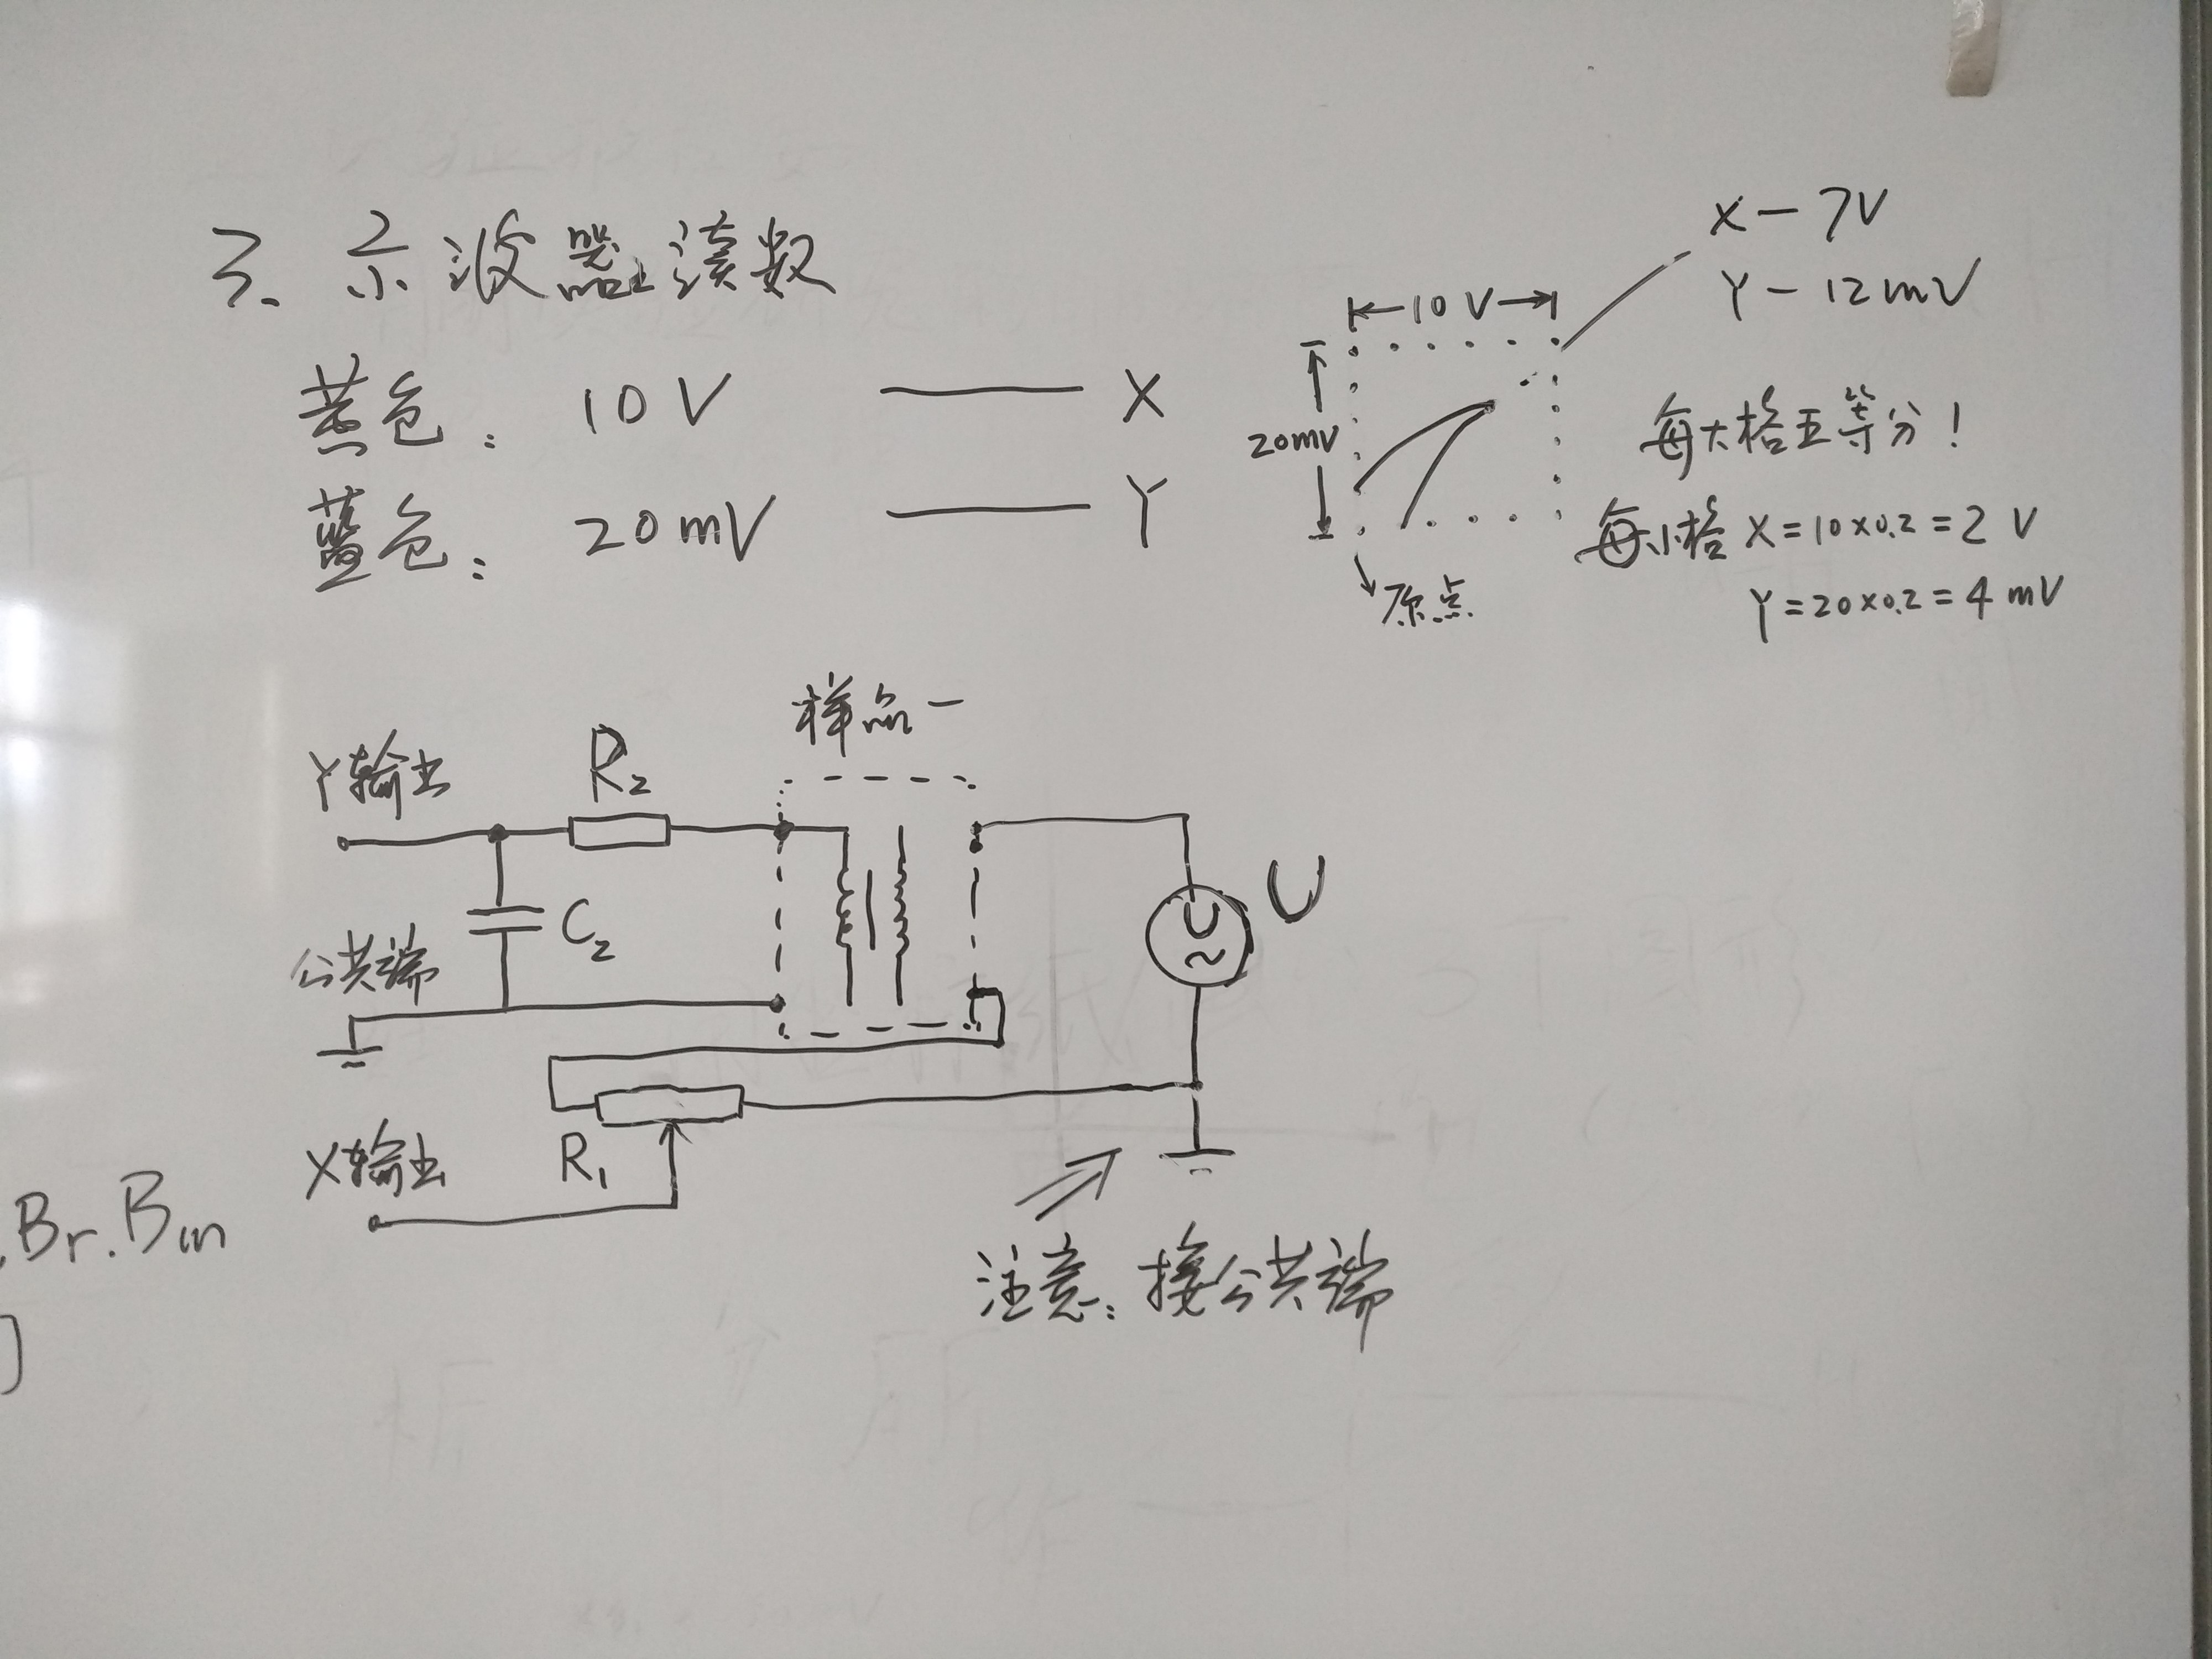 三、示波器读数
黄色: 10V —— X
蓝色: 20mV —— Y
X-7V
Y-12mV
10V
20mV
原点
每大格五等分!
每小格 X=10×0.2=2 V
Y=20×0.2=4 mV
样品一
Y输出
R2
公共端
C2
U
U
X输出
R1
注意:接公共端
.Br.Bm
]